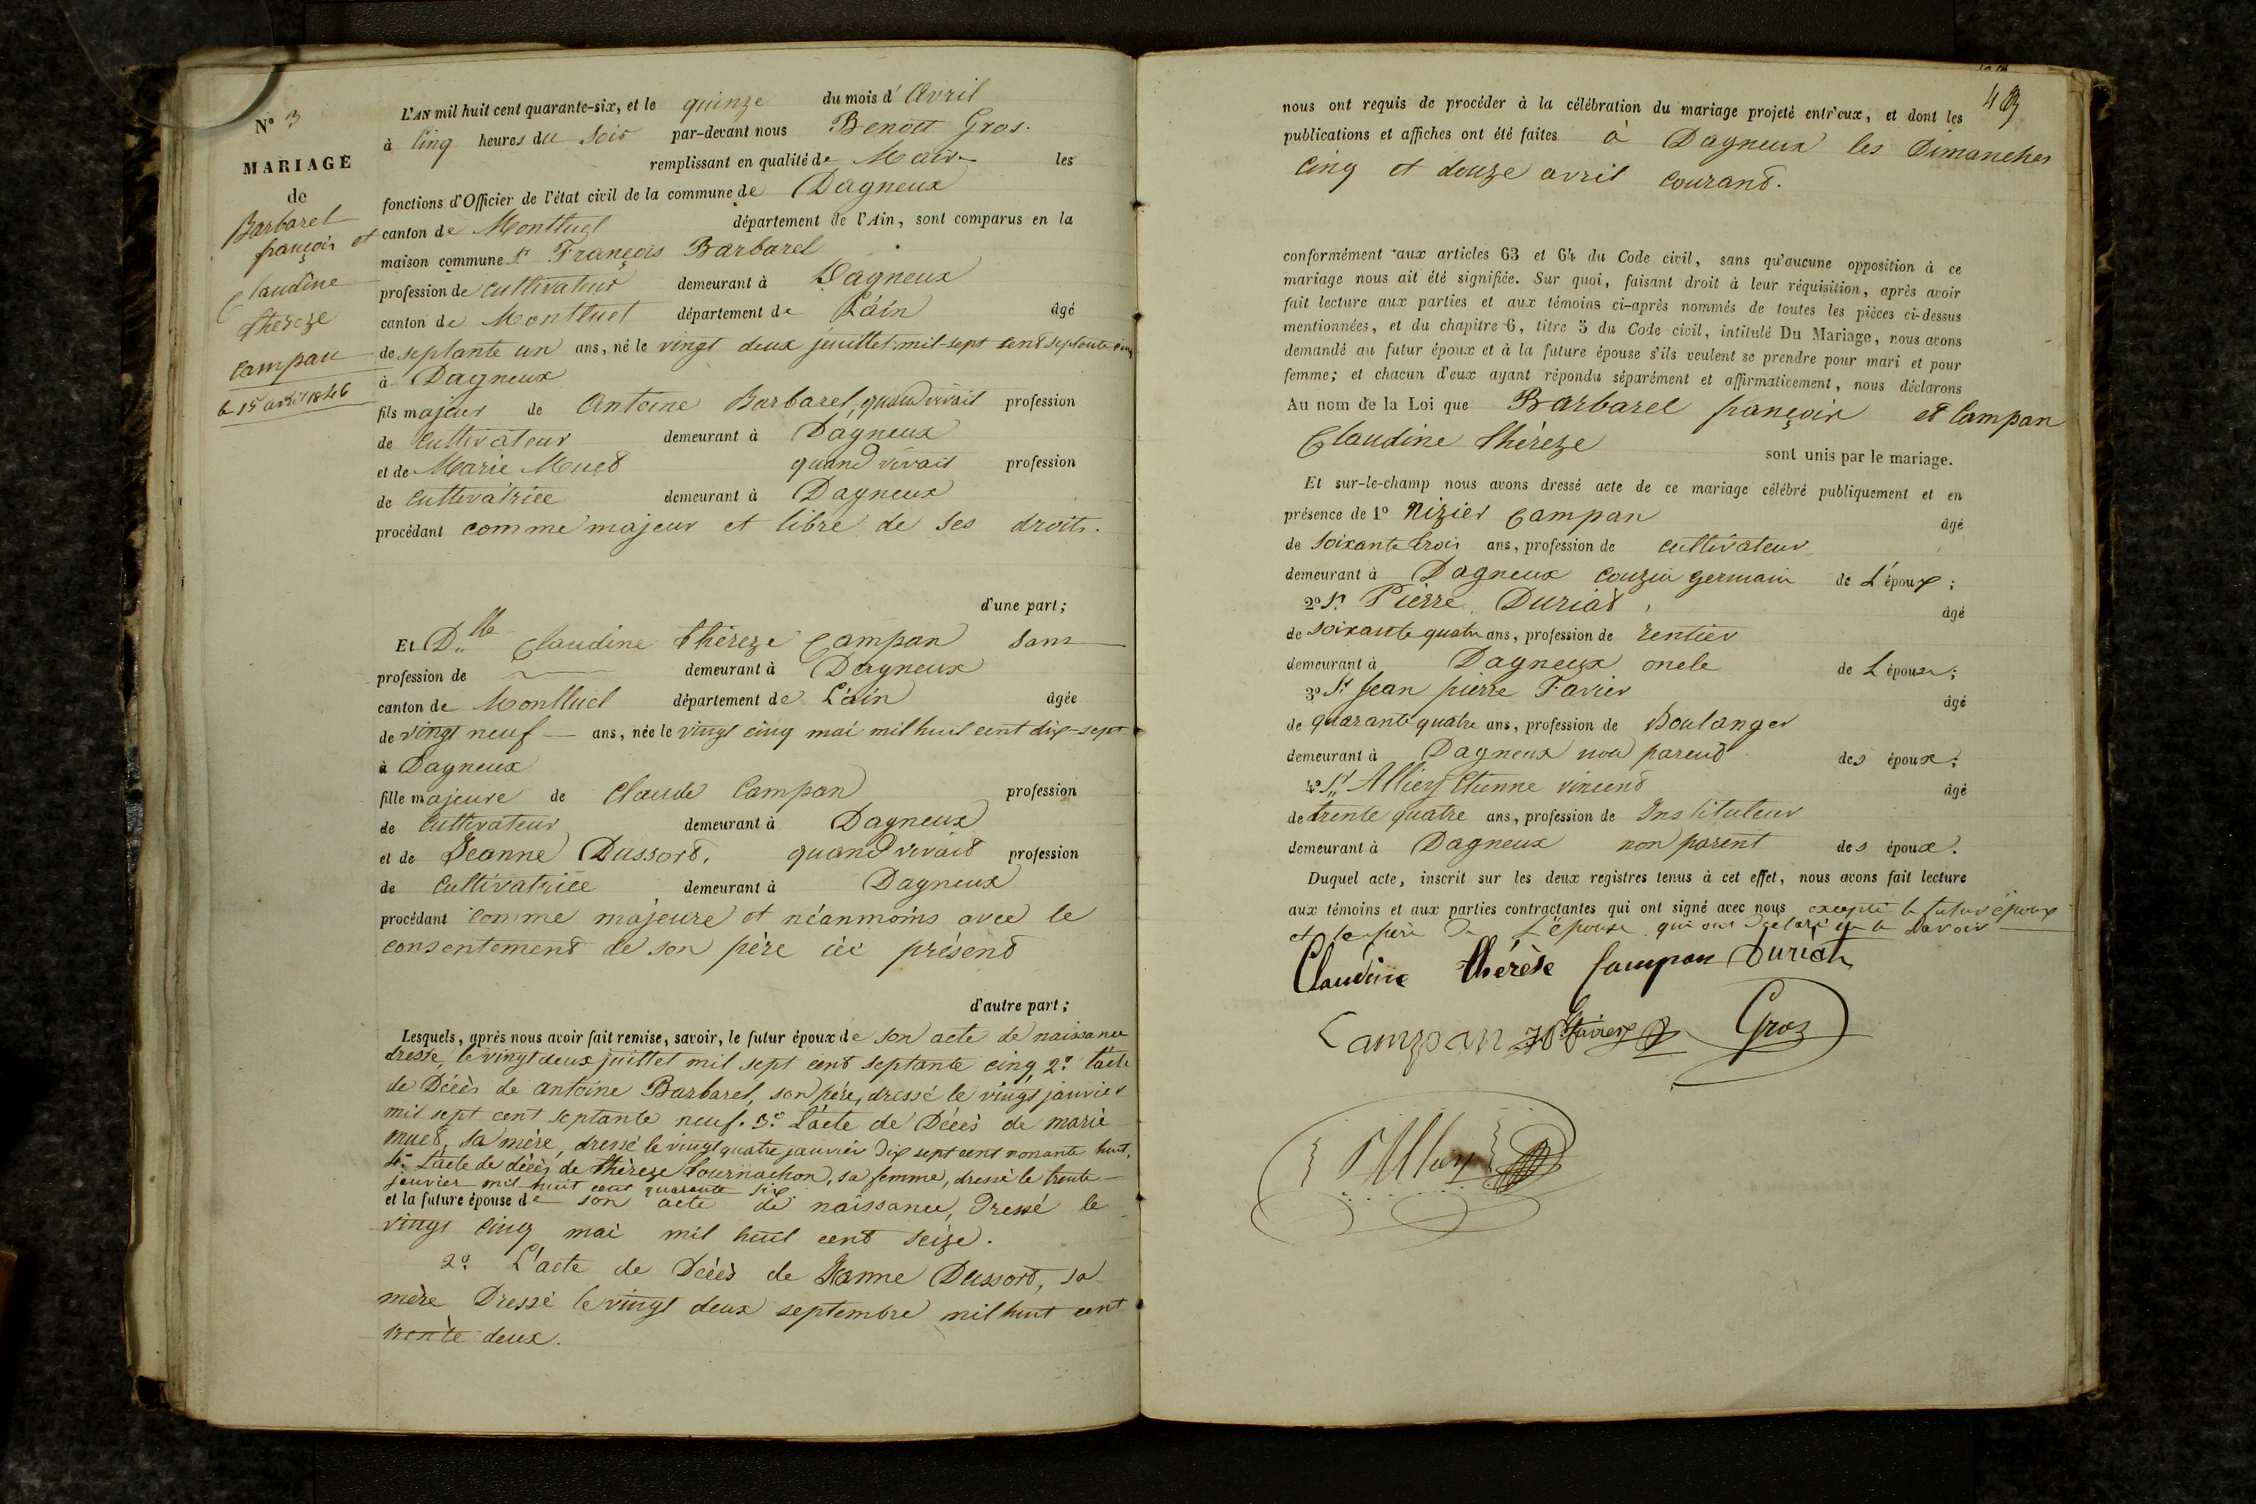 N° 3
MARIAGE
de
Barbarel
françois et
Claudine
thereze
Campan
le 15 avril 1846
L'AN mil huit cent quarante-six, et le quinze du mois d'Avril
à Cinq heures du Soir par-devant nous Benoit Gros.
remplissant en qualité de Maire les
fonctions d'Officier de l'état civil de la commune de Dagneux
canton de Montluel département de l'Ain, sont comparus en la
maison commune Sr François Barbarel
profession de cultivateur demeurant à Dagneux
canton de Montluel département de L'áin âgé
de septante un ans, né le vingt deux juillet mil-sept cent septente cinq
à Dagneux
fils majeur de Antoine Barbarel, quand vivait profession
de Cultivateur demeurant à Dagneux
et de Marie Muet quand vivait profession
de Cultivatrice demeurant à Dagneux
procédant comme majeur et libre de ses droits.
d'une part;
Et Dlle Claudine thèreze Campan Sans
profession de demeurant à Dagneux
canton de Montluel département de L'ain âgée
de vingt neuf ans, née le vingt cinq mai mil huit cent dix-sept
à Dagneux
fille majeure de Claude Campan profession
de Cultivateur demeurant à Dagneux
et de Jeanne Dussort, quand vivait profession
de Cultivatrice demeurant à Dagneux
procédant comme majeure et néanmoins avec le
consentement de son père ici présent
d'autre part;
Lesquels, après nous avoir fait remise, savoir, le futur époux de son acte de naissance
dressé, le vingt deux juillet mil sept cent septante cinq, 2° l'acte
de Décès de antoine Barbarel, son père, dressé le vingt janvier
mil sept cent septante neuf. 3° L'acte de Décès de marie
muet, sa mère, dressé le vingt quatre janvier dix sept cent nonante huit,
4° L'acte de décès de thèreze tournachon, sa femme, dressé le trente
janvier mil huit cent quarante six
et la future épouse de son acte de naissance, Dressé le
vingt cinq mai mil huit cent seize.
2° L'acte de Décès de Jeanne Dussort, sa
mère Dressé le vingt deux septembre mil huit cent
trente deux.
nous ont requis de procéder à la célébration du mariage projeté entr'eux, et dont les
publications et affiches ont été faites à Dagneux les Dimanches
Cinq et douze avril courant.
conformément aux articles 63 et 64 du Code civil, sans qu'aucune opposition à ce
mariage nous ait été signifiée. Sur quoi, faisant droit à leur réquisition, après avoir
fait lecture aux parties et aux témoins ci-après nommés de toutes les pièces ci-dessus
mentionnées, et du chapitre 6, titre 5 du Code civil, intitulé Du Mariage, nous avons
demandé au futur époux et à la future épouse s'ils veulent se prendre pour mari et pour
femme; et chacun d'eux ayant répondu séparément et affirmativement, nous déclarons
Au nom de la Loi que Barbarel françois et Campan
Claudine thérèze sont unis par le mariage.
Et sur-le-champ nous avons dressé acte de ce mariage célébré publiquement et en
présence de 1° Nizier Campan âgé
de soixante trois ans, profession de cultivateur
demeurant à Dagneux Couzin germain de L'époux;
2° Sr Pierre Duriat, âgé
de soixante quatre ans, profession de rentier
demeurant à Dagneux oncle de L'épouse;
3° Sr Jean pierre Favier âgé
de quarante quatre ans, profession de Boulanger
demeurant à Dagneux non parent des époux;
4° Sr Alliey Etienne vincent âgé
de trente quatre ans, profession de Instituteur
demeurant à Dagneux non parent des époux.
Duquel acte, inscrit sur les deux registres tenus à cet effet, nous avons fait lecture
aux témoins et aux parties contractantes qui ont signé avec nous excepté le futur époux
et le père de L'épouse qui ont déclaré ne le savoir
Claudine thérèse Campan Duriat
Campan JP favier Gros
Alliey